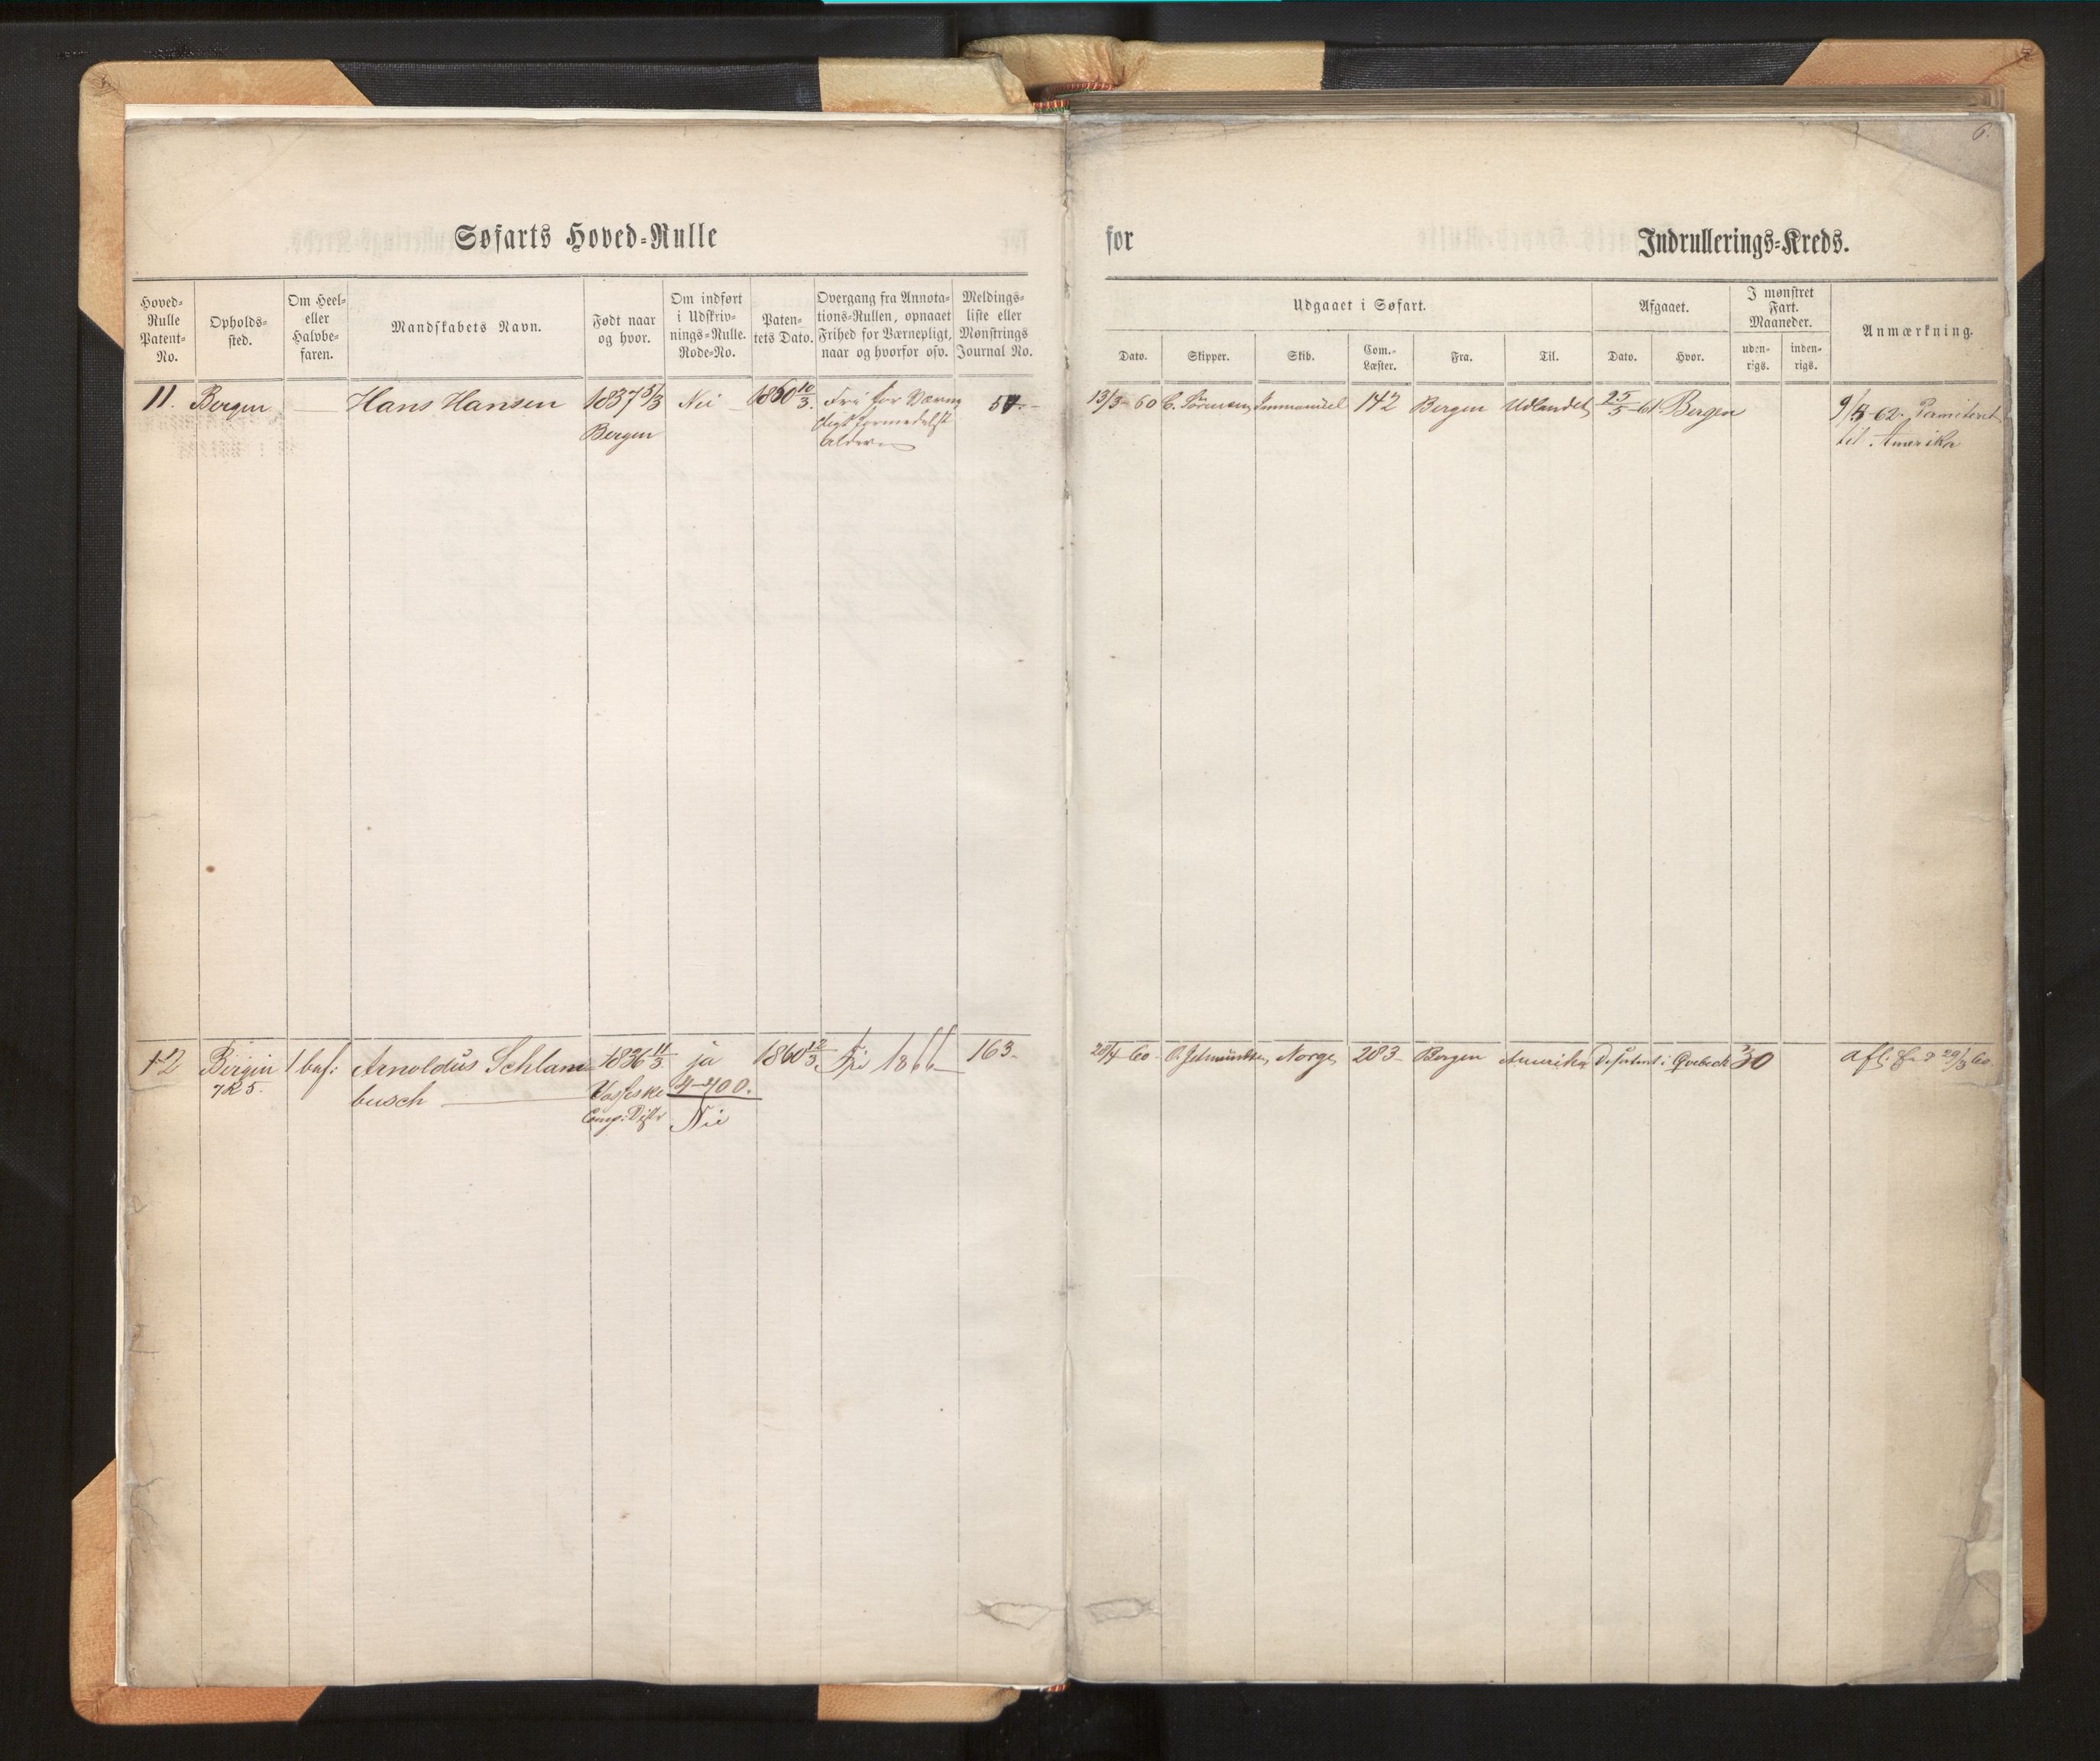 6.
Søfarts Hoved-Rulle
for Indrullerings-Kreds.
Hoved-Rulle Patent-No.
Opholds-sted.
Om Heel- eller Halvbe-faren.
Mandskabets Navn.
Født naar og hvor.
Om indført i Udskriv-nings-Rulle. Rode-No.
Paten-tets Dato.
Overgang fra Annota-tions-Rullen, opnaaet Frihed for Værnepligt, naar og hvorfor osv.
Meldings-liste eller Mønstrings Journal No.
Udgaaet i Søfart.
Dato. Skipper. Skib. Com.-Læster. Fra. Til.
Afgaaet.
Dato. Hvor.
I mønstret Fart. Maaneder.
uden-rigs. inden-rigs.
Anmærkning.
11. Bergen — Hans Hansen 1837 Nei 1860 10/3. Fri for Værne
Bergen
pligt formedelst
Alderen
13/3-60 Immanuel 142 Bergen Udlandet 25/5-61 Bergen
til Amerika
12 Bergen 1 bef: Arnoldus Schlam 1836 11/3 ja 1860 12/3 Fri 1866 163
7 R 5. busch
Comp: Distr Nei
20/4 60 Norge 283 Bergen Amerika Qvebeck 30